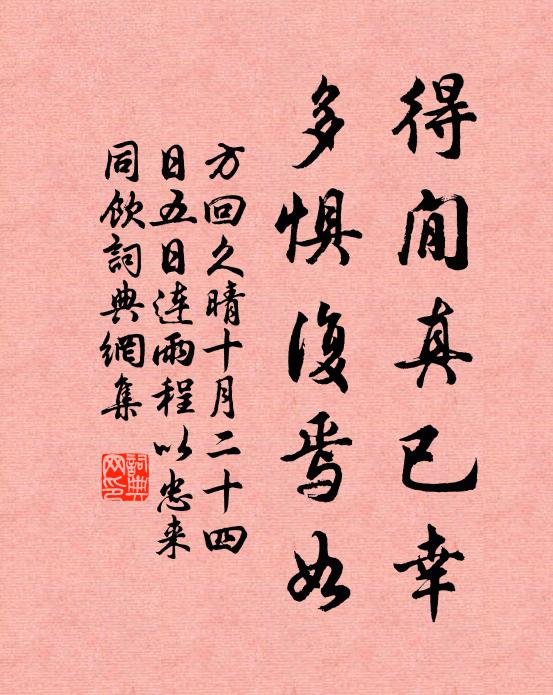 得閒真已幸
多惧復焉如
方回久晴十月二十四
日五日连雨程以忠来
同飲詞典網集
詞典
网印